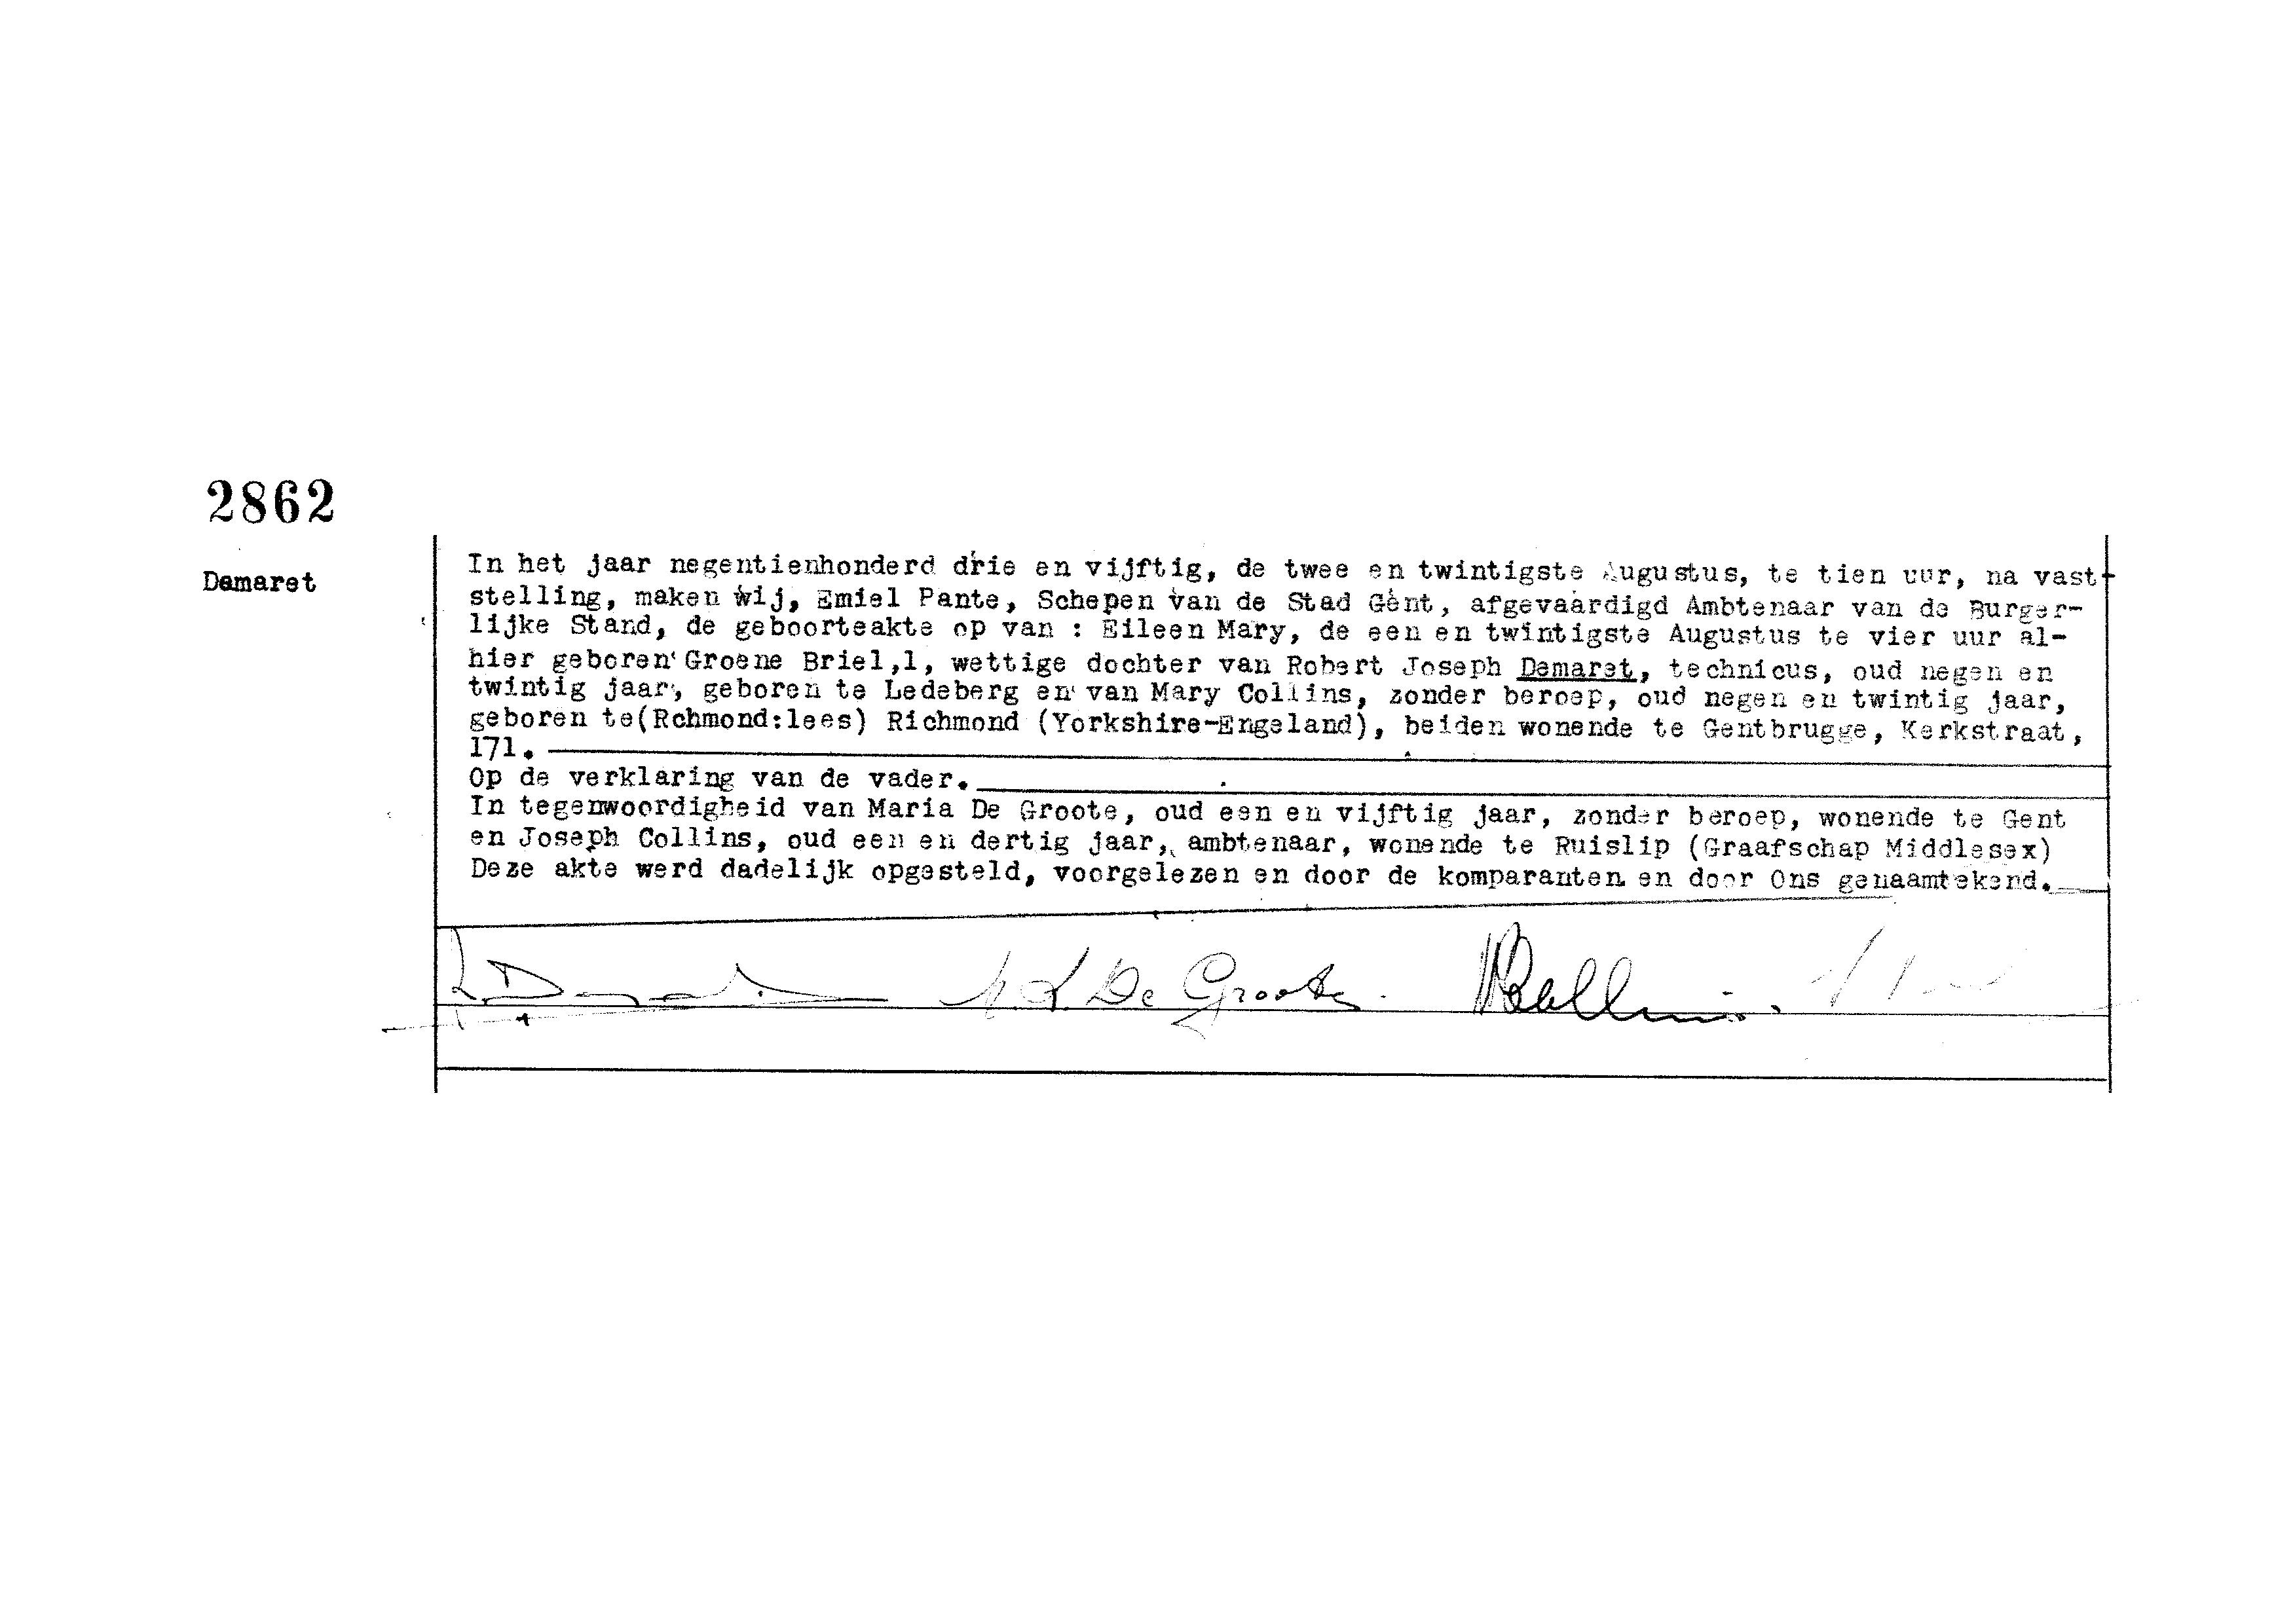 2862
Demaret
In het jaar negentienhonderd drie en vijftig, de twee en twintigste Augustus, te tien uur, na vast-
stelling, maken wij, Emiel Pante, Schepen van de Stad Gent, afgevaardigd Ambtenaar van de Burger-
lijke Stand, de geboorteakte op van : Eileen Mary, de een en twintigste Augustus te vier uur al-
hier geboren Groene Briel,1, wettige dochter van Robert Joseph Demaret, technicus, oud negen en
twintig jaar, geboren te Ledeberg en van Mary Collins, zonder beroep, oud negen en twintig jaar,
geboren te(Rchmond:lees) Richmond (Yorkshire-Engeland), beiden wonende te Gentbrugge, Kerkstraat,
171.
Op de verklaring van de vader.
In tegenwoordigheid van Maria De Groote, oud een en vijftig jaar, zonder beroep, wonende te Gent
en Joseph Collins, oud een en dertig jaar, ambtenaar, wonende te Ruislip (Graafschap Middlesex)
Deze akte werd dadelijk opgesteld, voorgelezen en door de komparanten en door Ons genaamtekend.
De Groote